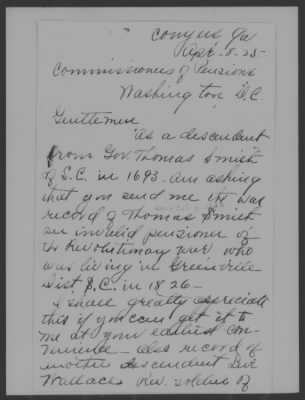 Conyers Ga
Apr - 8 - 25 -
Commissioner of Pensions
Washington D.C.
Gentlemen
As a descendent
from Gov. Thomas Smith
of S.C. in 1693 - am asking
that you send me the war
record of Thomas Smith
an invalid pensioner of
the Revolutionary war who
was living in Greenville
Dist S.C. in 1826 -
I shall greatly appreciate
this if you can get it to
me at your earliest con-
venience - also record of
another descendent
Wallace Rev. soldier of